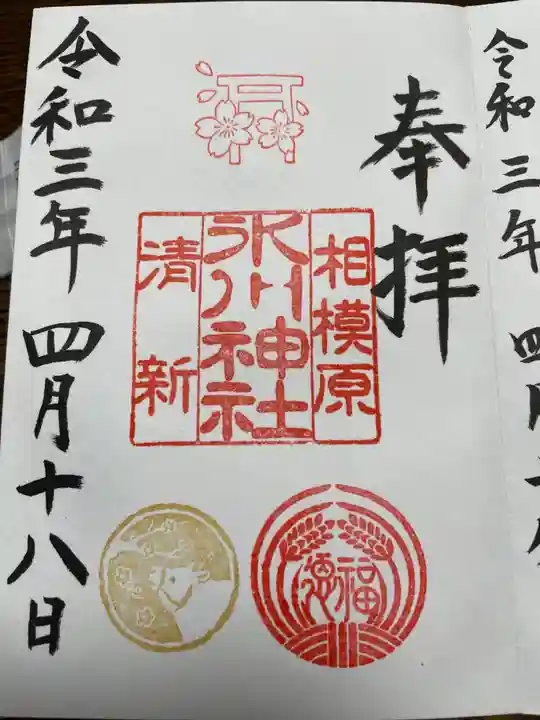 令和三年
奉拝
相模原
氷川神社
清新
令和三年四月十八日
福